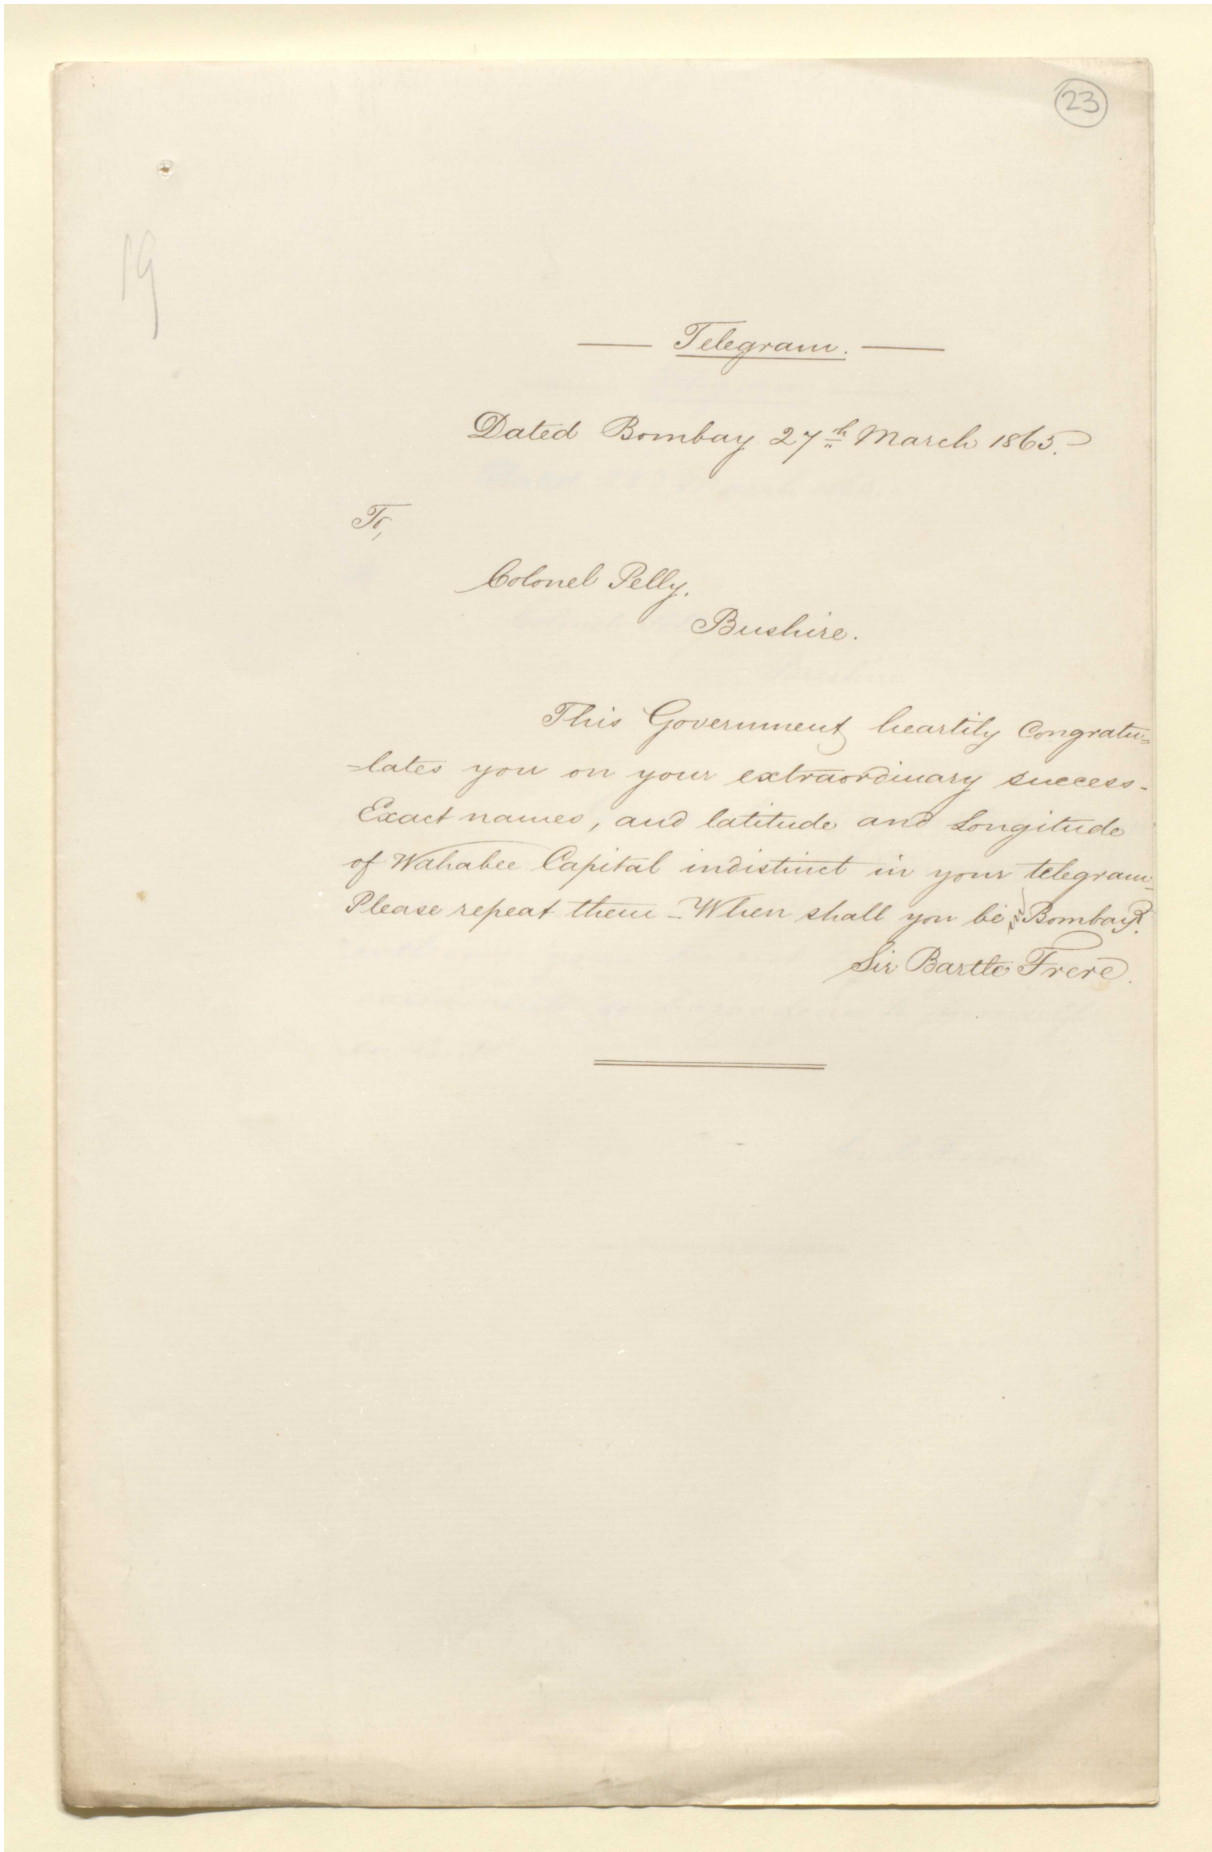 23
19
Telegram.
Dated Bombay 27th March 1865.
To,
Colonel Pelly.
Bushire.
This Government heartily Congratu=
=lates you on your extraordinary success.
Exact names, and latitude and Longitude
of Wahabee Capital indistinct in your telegram_
Please repeat them – When shall you be in Bombay?
Sir Bartle Frere.